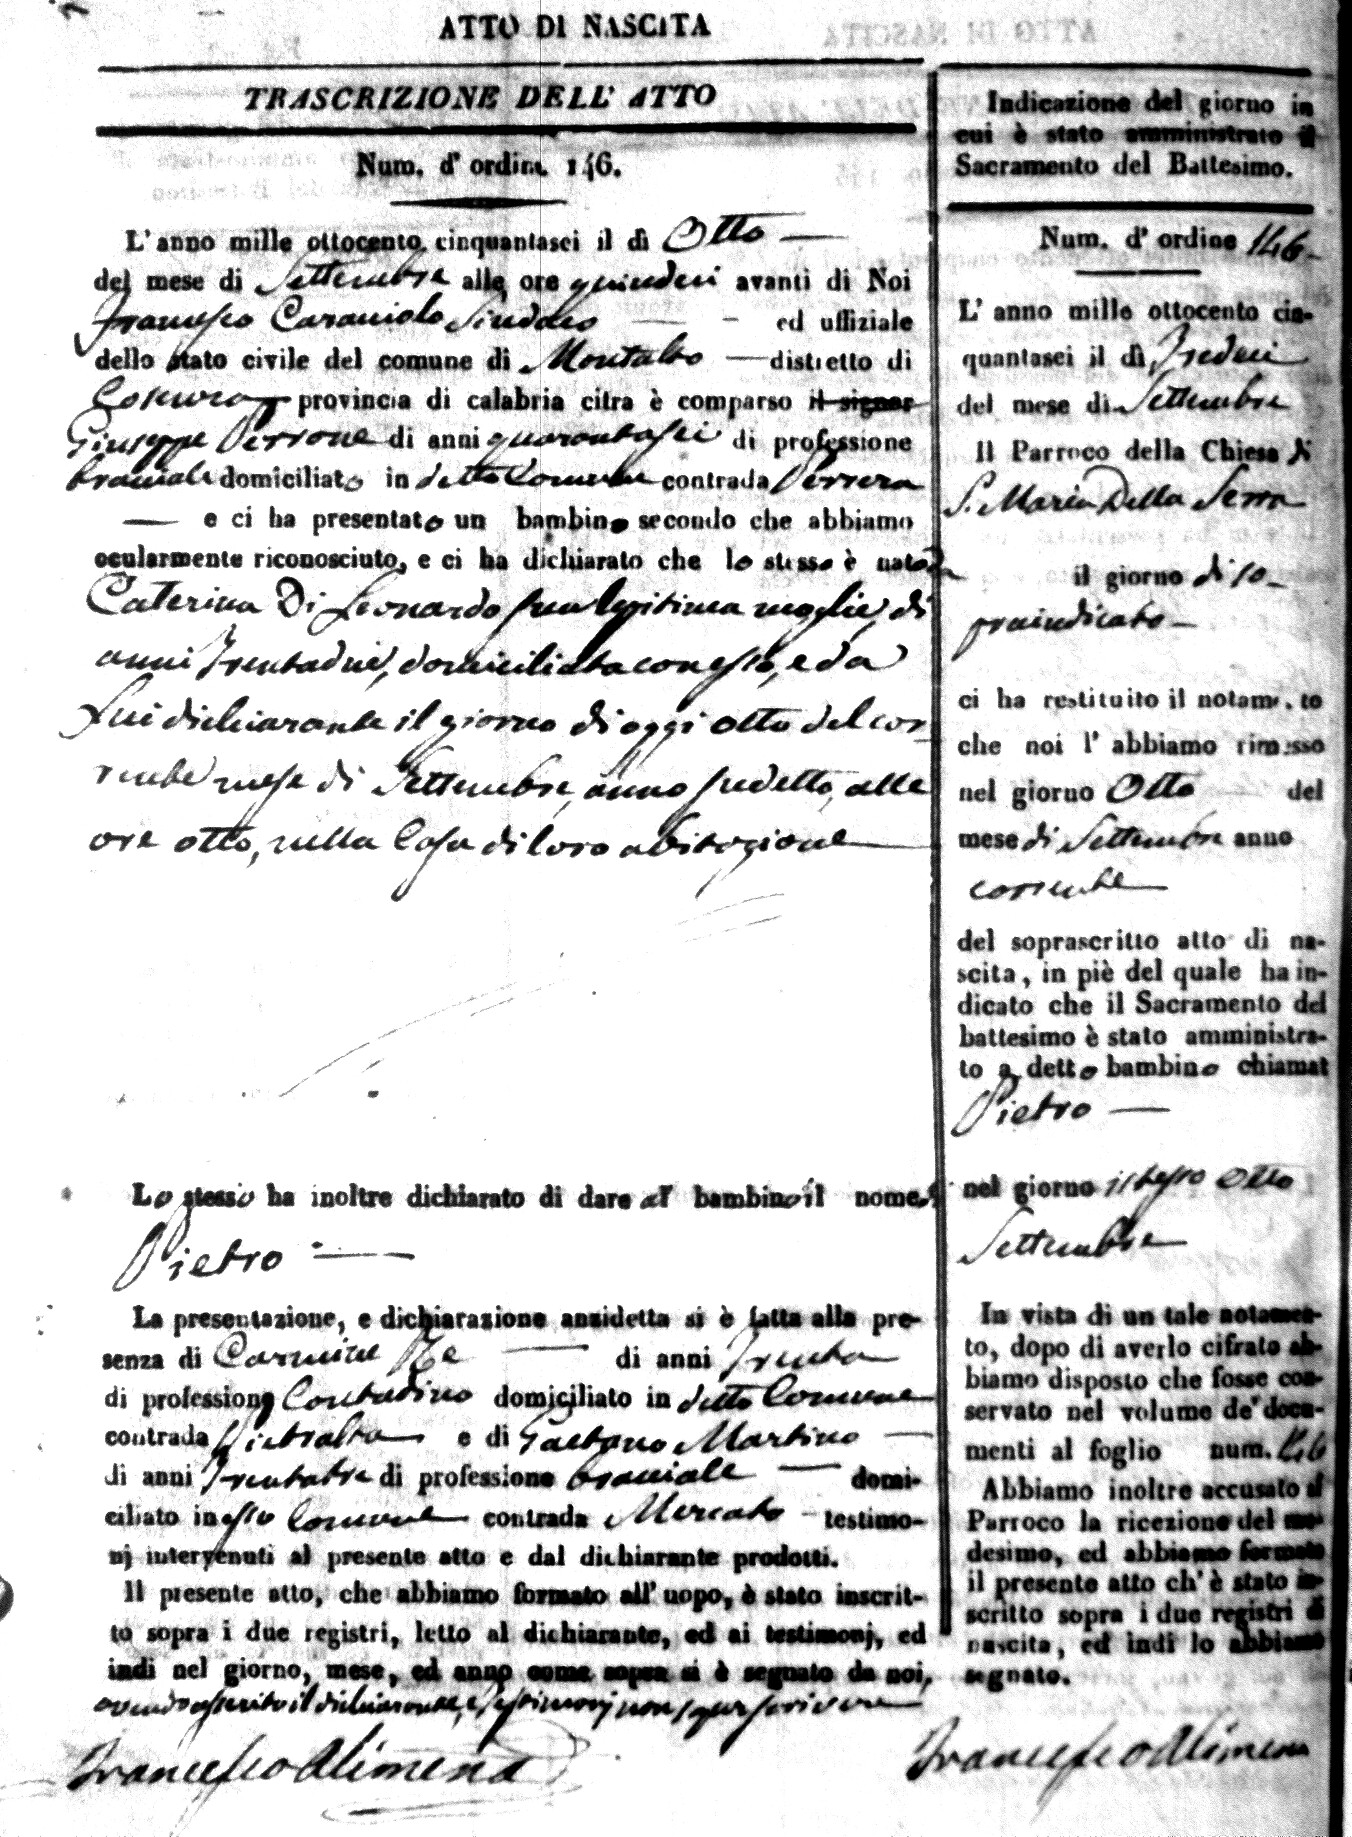 ATTO DI NASCITA
TRASCRIZIONE DELL' ATTO
Num. d' ordine 146.
L' anno mille ottocento cinquantasei il dì Otto
del mese di Settembre alle ore quindeci avanti di Noi
Francesco Sindaco ed uffiziale
dello stato civile del comune di Montalto distretto di
Cosenza provincia di calabria citra è comparso il signor
Giuseppe Perrone di anni quarantasei di professione
bracciale domiciliato in detto Comune contrada
e ci ha presentato un bambino secondo che abbiamo
ocularmente riconosciuto, e ci ha dichiarato che lo stesso è nato da
Caterina Di Leonardo sua legitima moglie, di
anni trentadue, domiciliata con esso, e da
lui dichiarante il giorno di oggi otto del cor-
rente mese di Settembre, anno sudetto, alle
ore otto, nella Casa di loro abitazione
Lo stesso ha inoltre dichiarato di dare al bambino il nome di
Pietro
La presentazione, e dichiarazione anzidetta si è fatta alla pre-
senza di Carmine di anni trenta
di professione Contadino domiciliato in detto Comune
contrada Pietralta e di Gaetano Martino
di anni trentatre di professione bracciale domi-
ciliato in esso Comune contrada Mercato testimo-
nj intervenuti al presente atto e dal dichiarante prodotti.
Il presente atto, che abbiamo formato all' uopo, è stato inscrit-
to sopra i due registri, letto al dichiarante, ed ai testimonj, ed
indi nel giorno, mese, ed anno come sopra si è segnato da noi,
avendo asserito il dichiarante, e testimonj non saper scrivere
Francesco Alimena
Indicazione del giorno in
cui è stato amministrato il
Sacramento del Battesimo.
Num. d' ordine 146
L' anno mille ottocento cin-
quantasei il dì Tredeci
del mese di Settembre
Il Parroco della Chiesa di
S. Maria Della Serra
il giorno di so-
praindicato
ci ha restituito il notamento
che noi l' abbiamo rimesso
nel giorno Otto del
mese di Settembre anno
corrente
del soprascritto atto di na-
scita, in piè del quale ha in-
dicato che il Sacramento del
battesimo è stato amministra-
to a detto bambino chiamat
Pietro
nel giorno istesso Otto
Settembre
In vista di un tale notamen-
to, dopo di averlo cifrato ab-
biamo disposto che fosse con-
servato nel volume de' docu-
menti al foglio num. 146
Abbiamo inoltre accusato al
Parroco la ricezione del me-
desimo, ed abbiamo formato
il presente atto ch' è stato in-
scritto sopra i due registri di
nascita, ed indi lo abbiamo
segnato.
Francesco Alimena